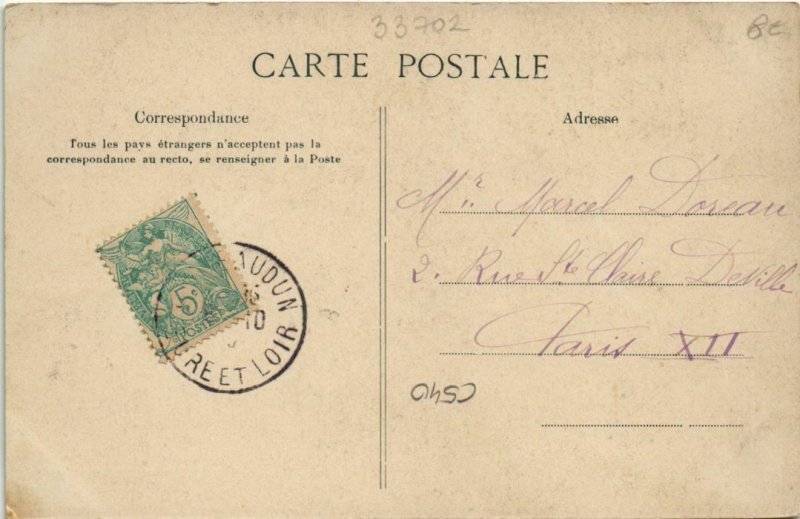 33702
8€
CARTE POSTALE
Correspondance
Tous les pays étrangers n'acceptent pas la
correspondance au recto, se renseigner à la Poste
Adresse
Mr. Marcel Doreau
2. Rue Ste Claire Deville
Paris XII
5c
POSTES
AUDUN
RE ET LOIR
C540